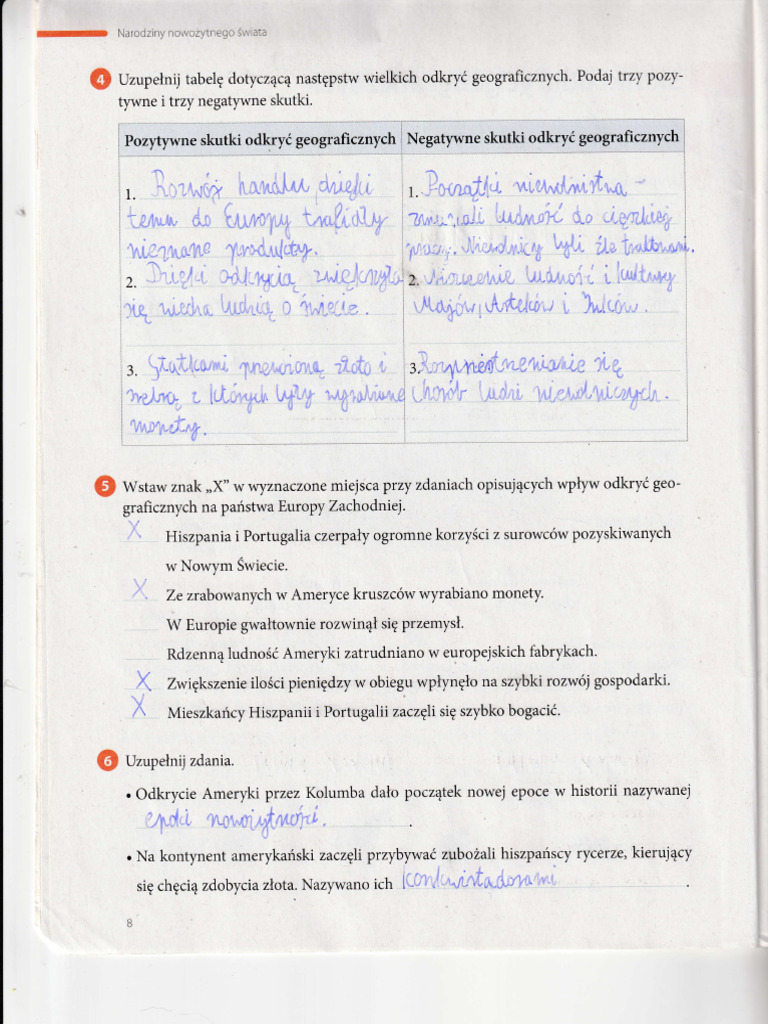 Narodziny nowożytnego świata
4 Uzupełnij tabelę dotyczącą następstw wielkich odkryć geograficznych. Podaj trzy pozy-
tywne i trzy negatywne skutki.
Pozytywne skutki odkryć geograficznych
1. Rozwój handlu, dzięki
temu do Europy trafiały
nieznane produkty.
2. Dzięki odkrycią zwiększyła
się wiecha ludzią o świecie.
3. Statkami przewożoną złoto i
srebrą z których były wyrabiane
monety.
Negatywne skutki odkryć geograficznych
1. Początki niewolnistwa -
zmuszali ludność do ciężkiej
pracy. Niewolnicy byli źle traktowani.
2. Niszczenie ludność i kultury
Majów, Azteków i Inków.
3. Rozprzestrzenianie się
chorób ludzi niewolniczych.
5 Wstaw znak „X” w wyznaczone miejsca przy zdaniach opisujących wpływ odkryć geo-
graficznych na państwa Europy Zachodniej.
X Hiszpania i Portugalia czerpały ogromne korzyści z surowców pozyskiwanych
w Nowym Świecie.
X Ze zrabowanych w Ameryce kruszców wyrabiano monety.
W Europie gwałtownie rozwinął się przemysł.
Rdzenną ludność Ameryki zatrudniano w europejskich fabrykach.
X Zwiększenie ilości pieniędzy w obiegu wpłynęło na szybki rozwój gospodarki.
X Mieszkańcy Hiszpanii i Portugalii zaczęli się szybko bogacić.
6 Uzupełnij zdania.
• Odkrycie Ameryki przez Kolumba dało początek nowej epoce w historii nazywanej
epoki nowożytności.
• Na kontynent amerykański zaczęli przybywać zubożali hiszpańscy rycerze, kierujący
się chęcią zdobycia złota. Nazywano ich konkwistadorami.
8